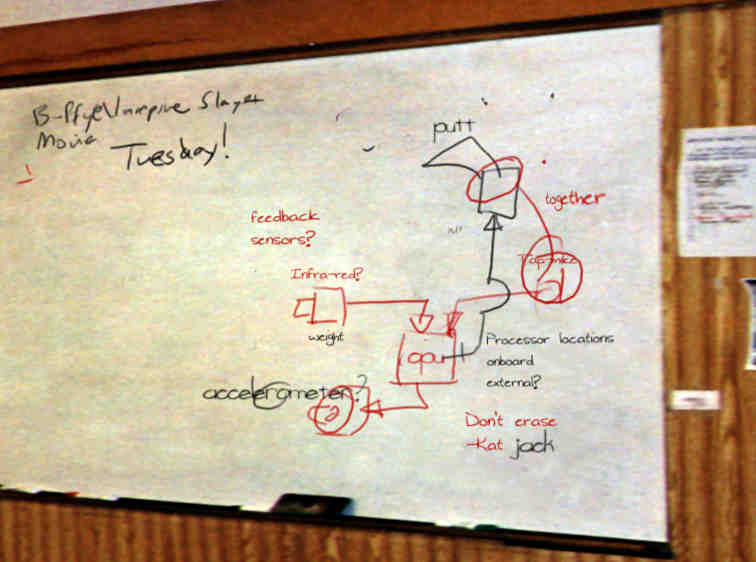 B-ffye Vampire Slayer
Movie
Tuesday!
putt
together
feedback
sensors?
Infra-red?
weight
cpu
Processor locations
onboard
external?
accelerometer?
Don't erase
-Kat jack